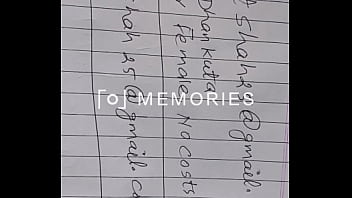 Shah2 @gmail.
Dhankuta
Female No costs
hah 25@gmail.co
MEMORIES